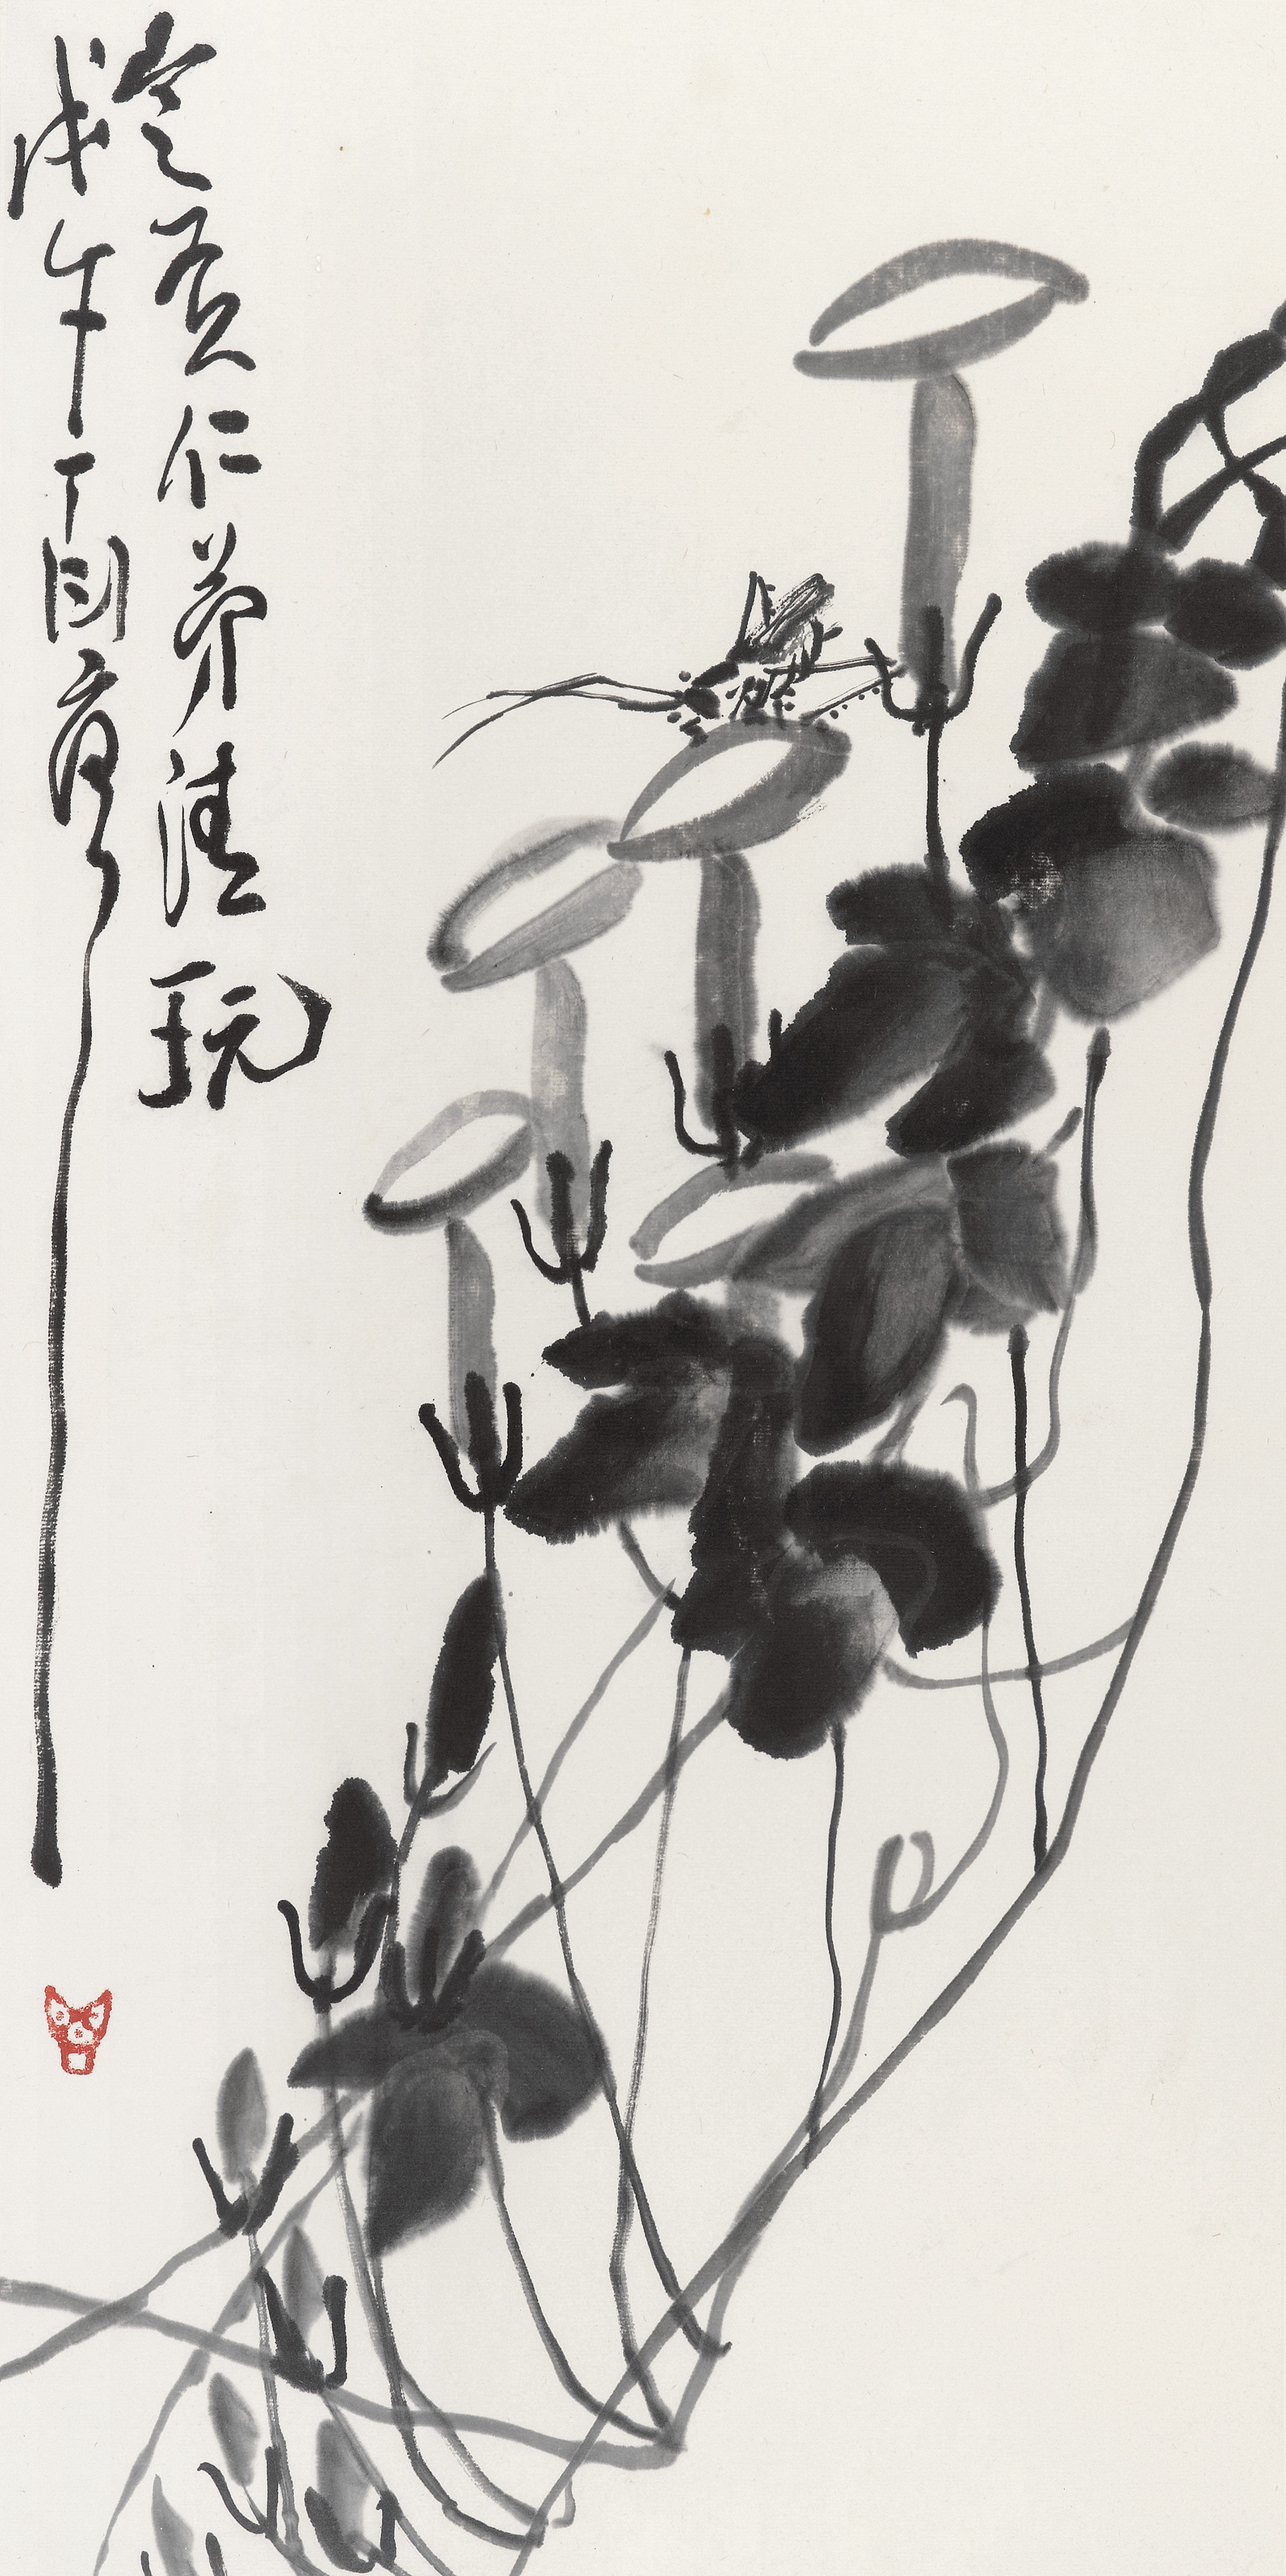 仁弟清玩
戊午丁衍庸